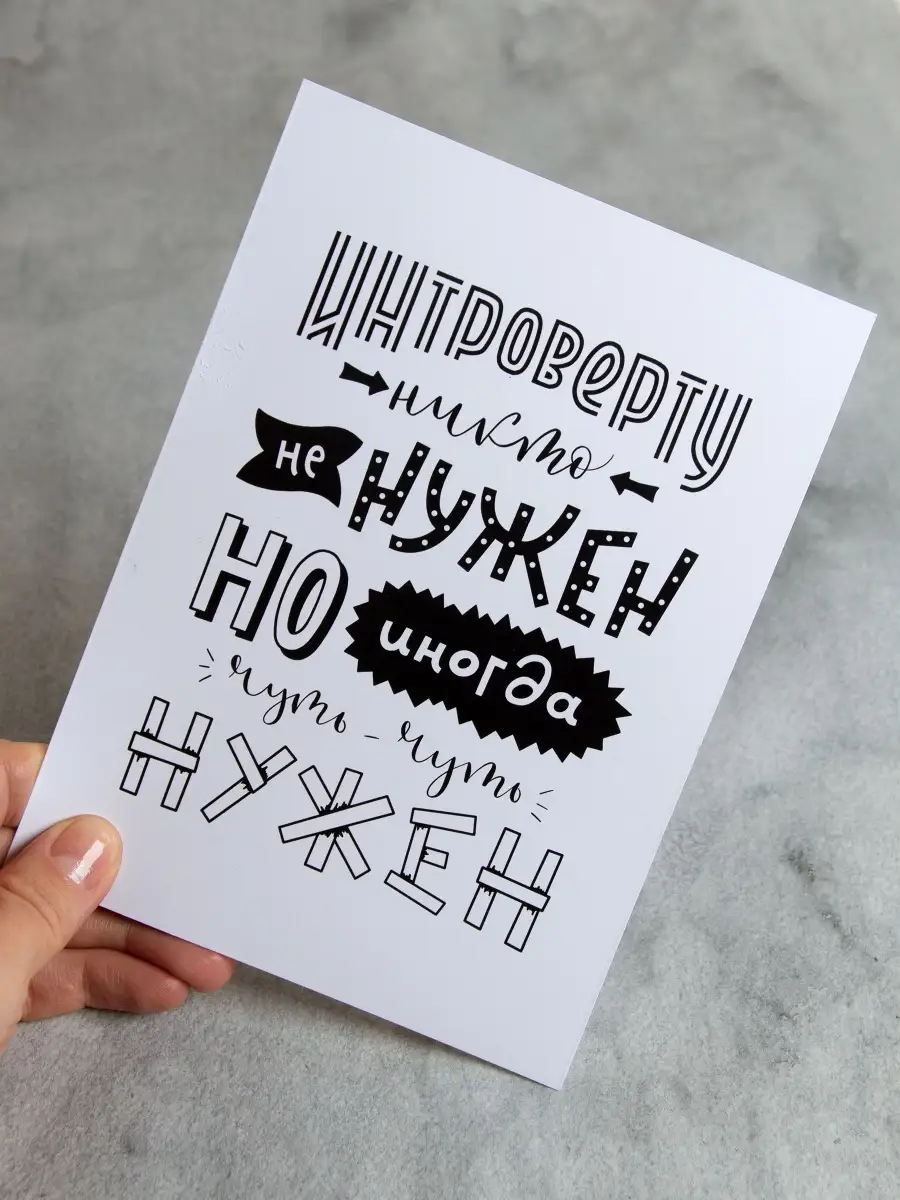 ИНТРОВЕРТУ
никто
не НУЖЕН
НО иногда
чуть-чуть
НУЖЕН